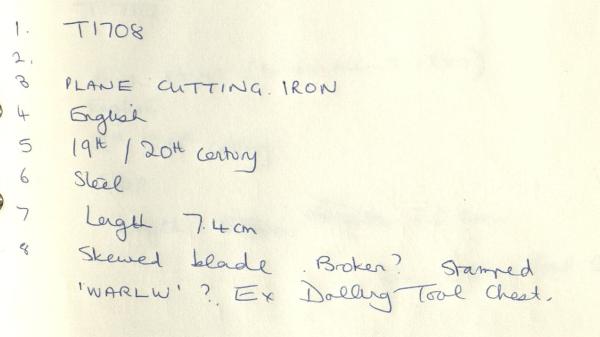 1. T1708
2.
3 PLANE CUTTING. IRON
4 English
5 19th / 20th century
6 Steel
7 Length 7.4cm
8 Skewed blade. Broken? Stamped
'WARLW'? Ex Dalling Tool Chest.